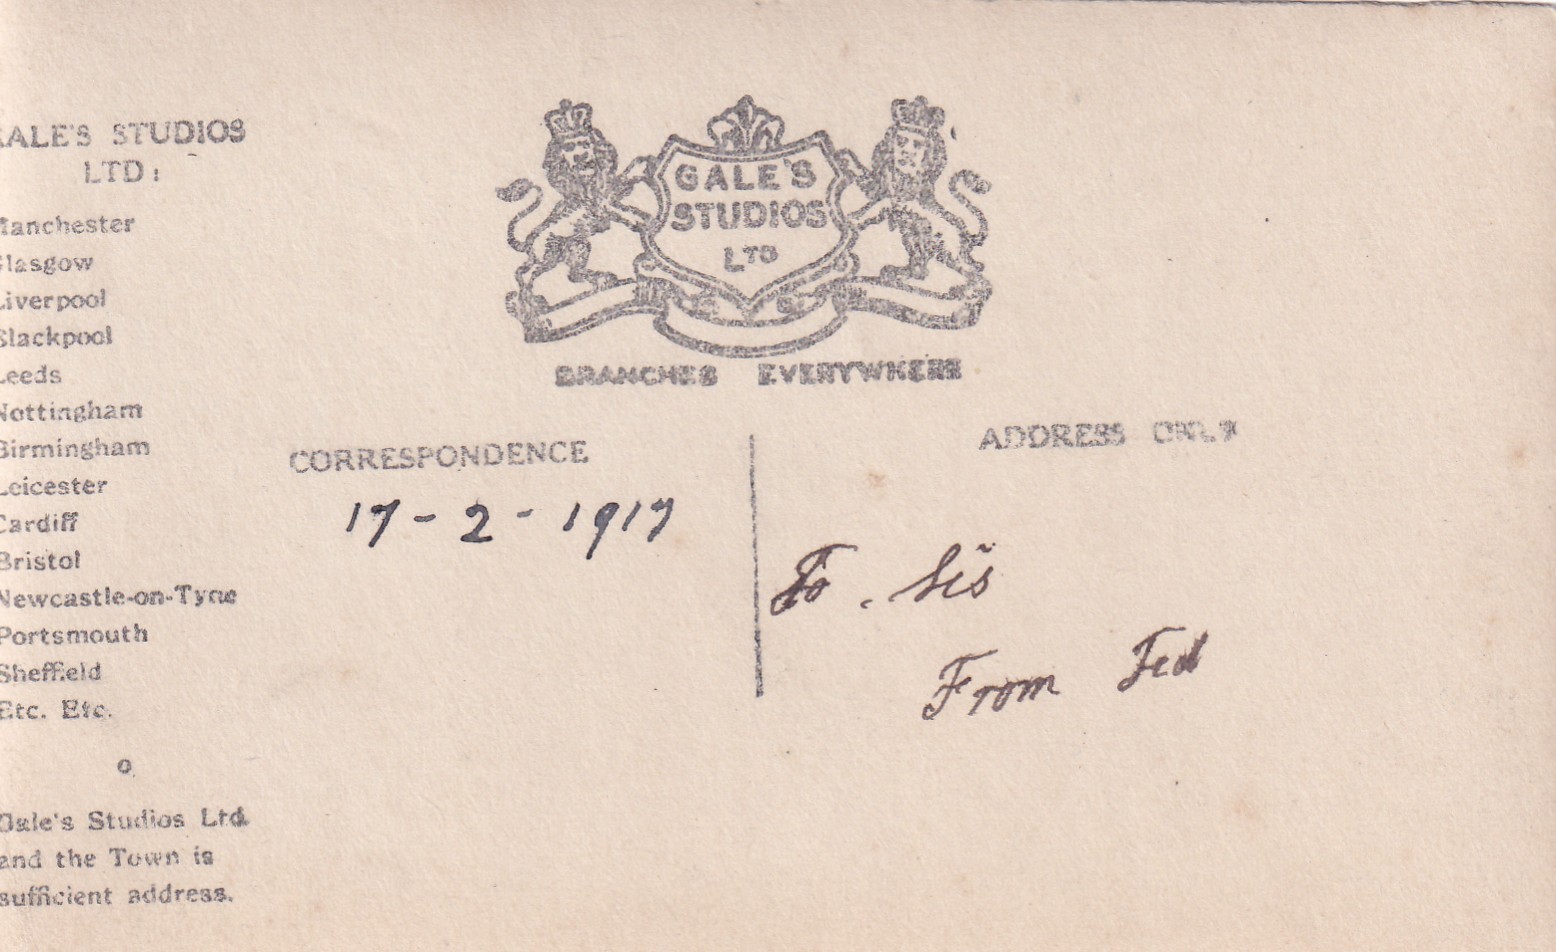 GALE'S STUDIOS
LTD:
Manchester
Glasgow
Liverpool
Blackpool
Leeds
Nottingham
Birmingham
Leicester
Cardiff
Bristol
Newcastle-on-Tyne
Portsmouth
Sheffield
Etc. Etc.
Gale's Studios Ltd.
and the Town is
sufficient address.
GALE'S
STUDIOS
LTD
BRANCHES EVERYWHERE
CORRESPONDENCE
17-2-1917
ADDRESS ONLY
To. Sis
From Ted